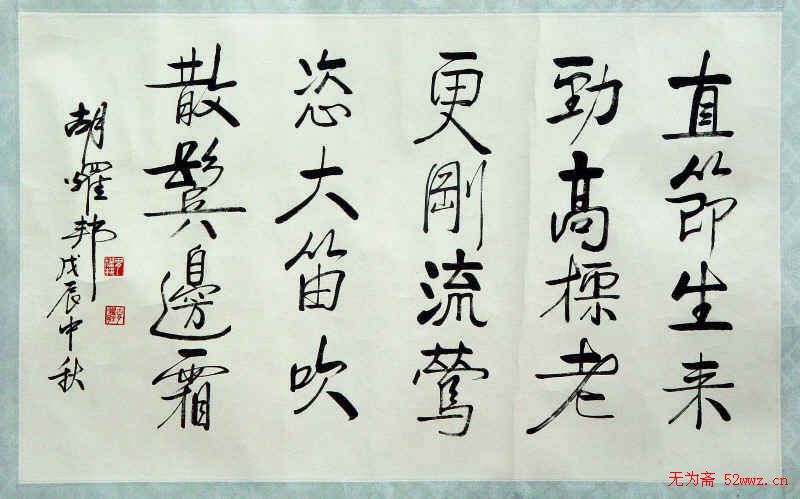 直節生来
勁高標老
更剛流鶯
恣大笛吹
散鬓邊霜
胡耀邦
戊辰中秋
无为斋 52wwz.cn